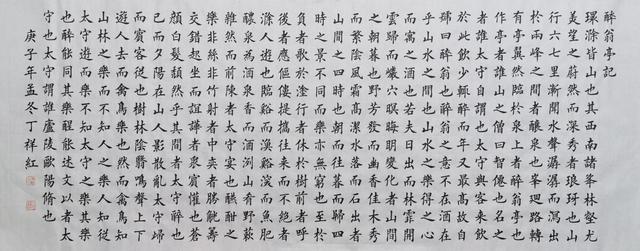 醉翁亭記
環滁皆山也其西南諸峰林壑尤
美望之蔚然而深秀者琅琊也山
行六七里漸聞水聲潺潺而瀉出
於兩峰之間者釀泉也峯迴路轉
有亭翼然臨於泉上者醉翁亭也
作亭者誰山之僧智僊也名之
者誰太守自謂也太守與客來飲
於此飲少輒醉而年又最高故自
號曰醉翁也醉翁之意不在酒在
乎山水之間也山水之樂得之心
而寓之酒也若夫日出而林霏開
雲歸而巖穴暝晦明變化者山間
之朝暮也野芳發而幽香佳木秀
而繁陰風霜高潔水落而石出者
山間之四時也朝而往暮而歸四
時之景不同而樂亦無窮也至於
負者歌於塗行者休於樹前者呼
後者應傴僂提攜往來而不絕者
滁人遊也臨谿而漁谿深而魚肥
釀泉為酒泉香而酒洌山肴野蔌
雜然而前陳者太守宴也宴酣之
樂非絲非竹射者中奕者勝觥籌
交錯起坐而諠譁者衆賓懽也蒼
顏白髮頹然乎其間者太守醉也
已而夕陽在山人影散亂太守歸
而賓客從也樹林陰翳鳴聲上下
遊人去而禽鳥樂也然而禽鳥知
山林之樂而不知人之樂人知從
太守遊而樂而不知太守之樂其樂
也醉能同其樂醒能述文以者太
守也太守謂誰廬陵歐陽脩也
庚子年孟冬丁祥紅